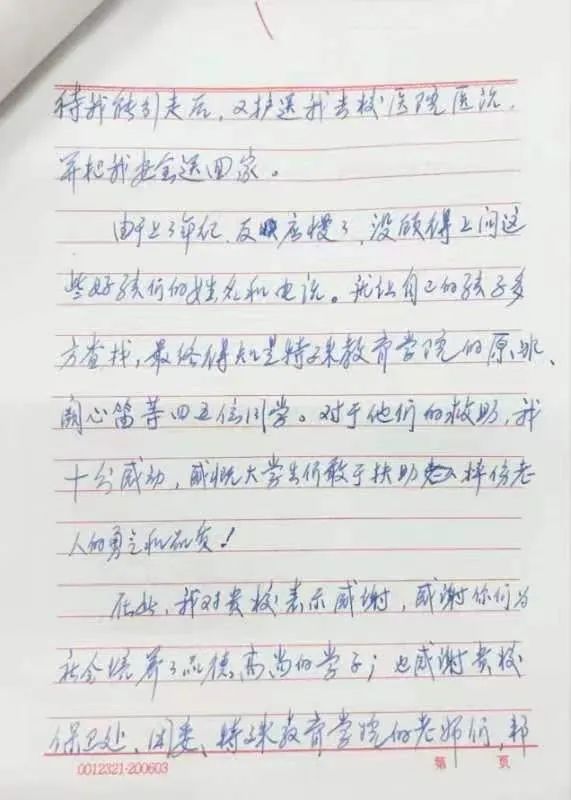 待我能引走后，又护送我去校医院医治，
并把我安全送回家。
由于上了年纪，反应慢了，没顾得上问这
些好孩们的姓名和电话。我让自己的孩子多
方查找，最终得知是特殊教育学院的原冰、
阎心笛等四五位同学。对于他们的救助，我
十分感动，感慨大学生们敢于扶助摔伤老
人的勇气和品质！
在此，我对贵校表示感谢，感谢你们为
社会培养了品德高尚的学子；也感谢贵校
保卫处、团委、特殊教育学院的老师们，帮
0012321-200603
第 页